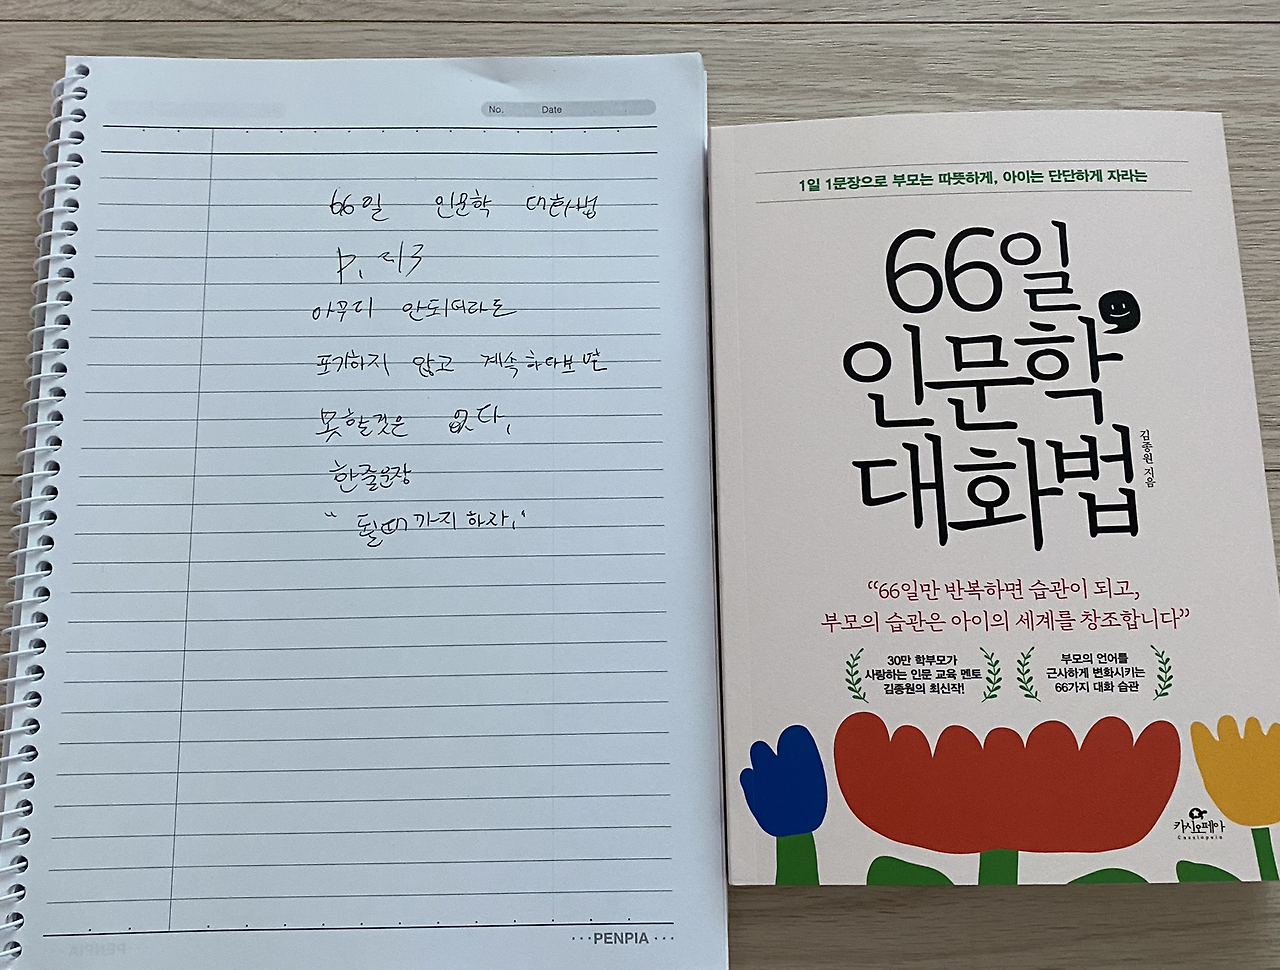 No. Date
66일 인문학 대화법
p.
아무리 안되더라도
포기하지 않고 계속하다보면
못할것은 없다.
한줄문장
“될때까지하자.”
PENPIA
1일 1문장으로 부모는 따뜻하게, 아이는 단단하게 자라는
66일
인문학
대화법
김종원 지음
“66일만 반복하면 습관이 되고,
부모의 습관은 아이의 세계를 창조합니다”
30만 학부모가
사랑하는 인문 교육 멘토
김종원의 최신작!
부모의 언어를
근사하게 변화시키는
66가지 대화 습관
카시오페아
Cassiopeia